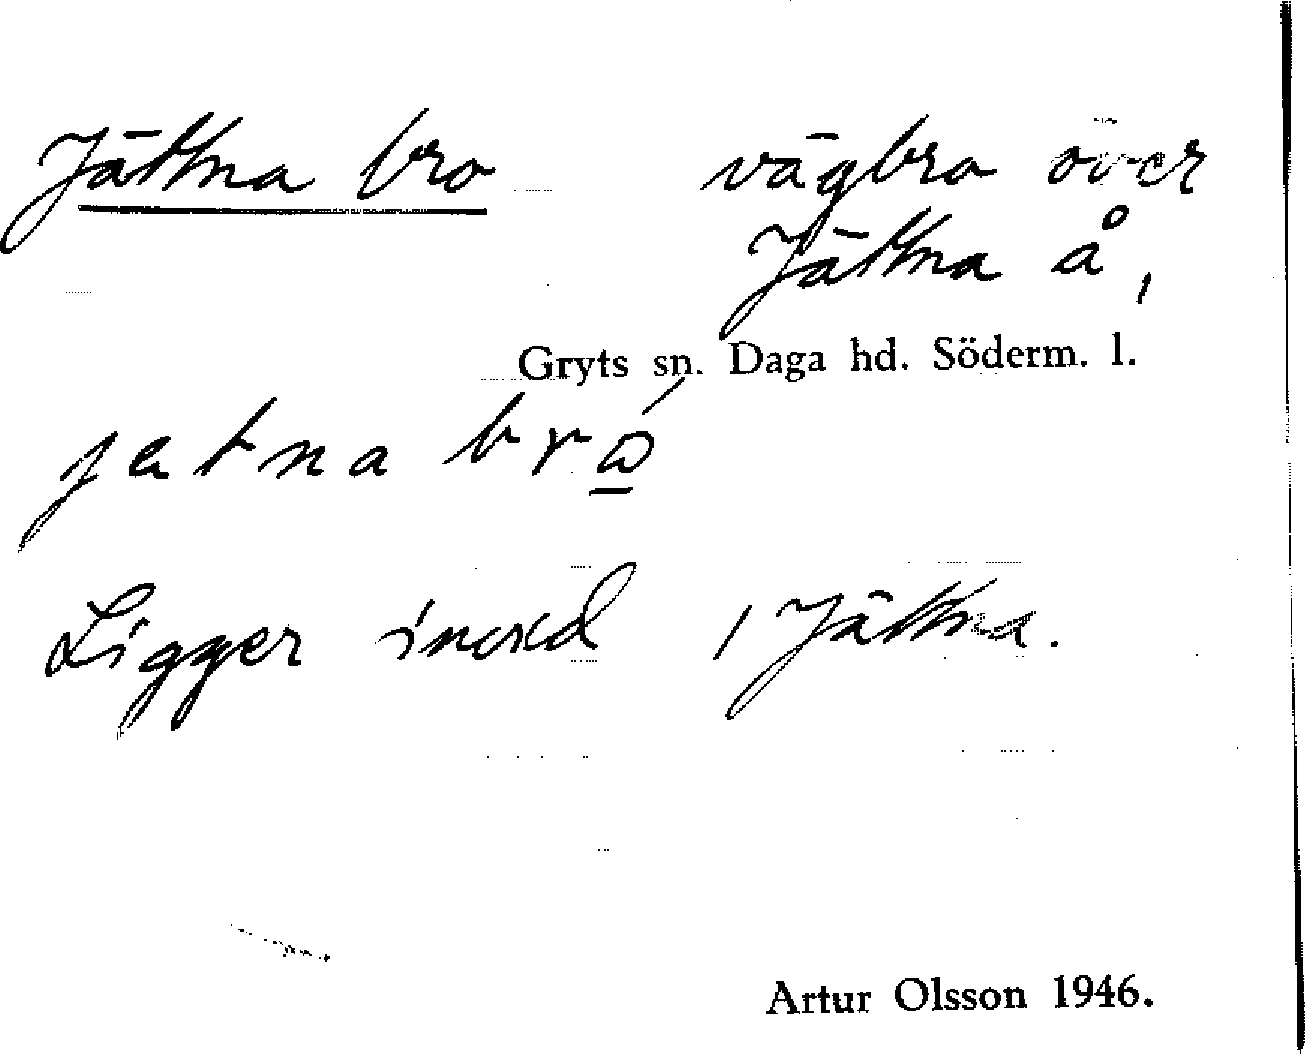 Jättna bro vägbro över
Jättna å,
Gryts sn. Daga hd. Söderm. l.
jetna bro̲´
Ligger i Jättna.
Artur Olsson 1946.